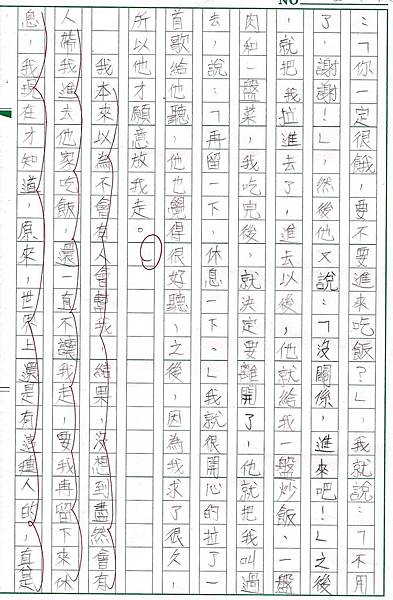 NO.
：「你一定很餓，要不要進來吃飯？」，我就說：「不用
了，謝謝！」，然後他又說：「沒關係，進來吧！」之後
，就把我拉進去了，進去以後，他就給我一盤炒飯、一盤
肉和一盤菜，我吃完後，就決定要離開了，他就把我叫過
去，說：「再留一下，休息一下。」我就很開心的拉了一
首歌給他聽，他也覺得很好聽，之後，因為我求了很久，
所以他才願意放我走。
我本來以為不會有人會幫我，結果，沒想到盡然會有
人帶我進去他家吃飯，還一直不讓我走，要我再留下來休
息，我現在才知道，原來，世界上還是有這種人的，真是